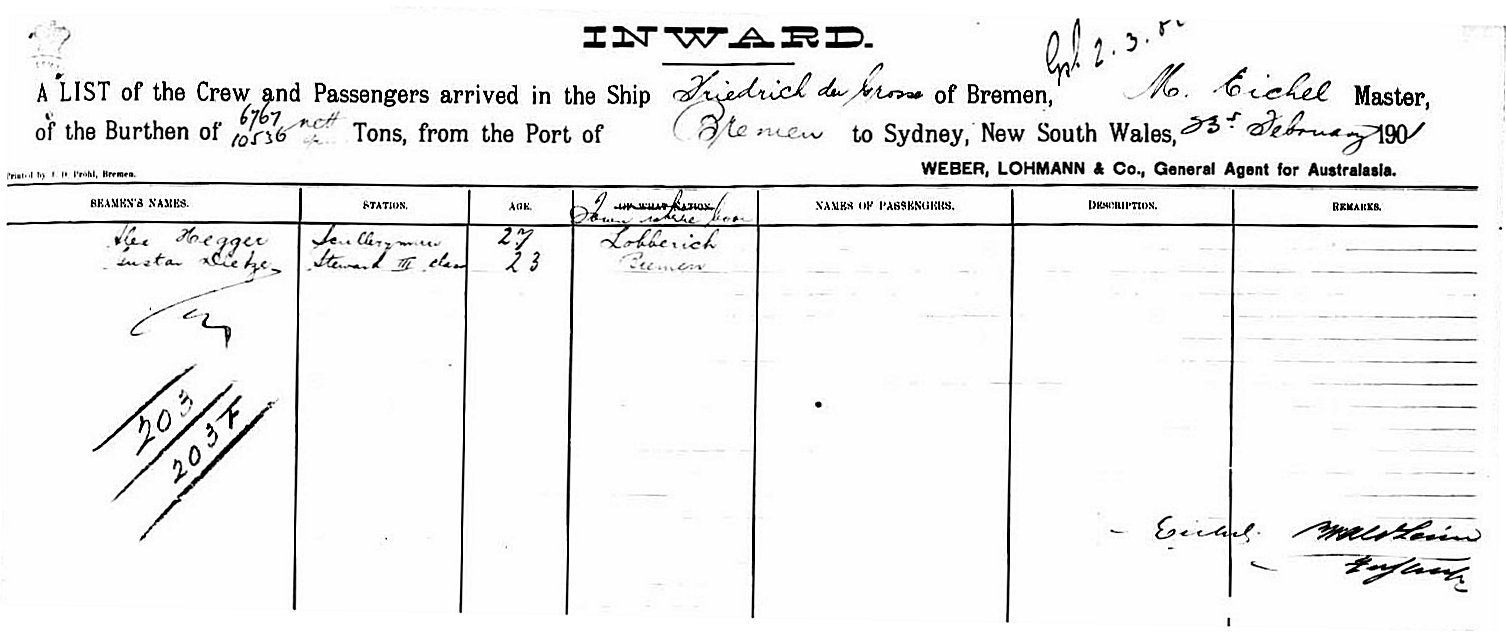 INWARD.
2. 3.
A LIST of the Crew and Passengers arrived in the Ship Friedrich der Grosse of Bremen, M. Eichel Master,
6767 nett
of the Burthen of Tons, from the Port of Bremen to Sydney, New South Wales, 23rd February 1901
10536
Printed by J. D. Prohl, Bremen.
WEBER, LOHMANN & Co., General Agent for Australasia.
SEAMEN'S NAMES. STATION. AGE. OF WHAT NATION. NAMES OF PASSENGERS. DESCRIPTION. REMARKS.
Town where born
Hegger Sculleryman 27 Lobberich
Gustav Dietze Steward III class 23 Bremen
203
203
Eichel